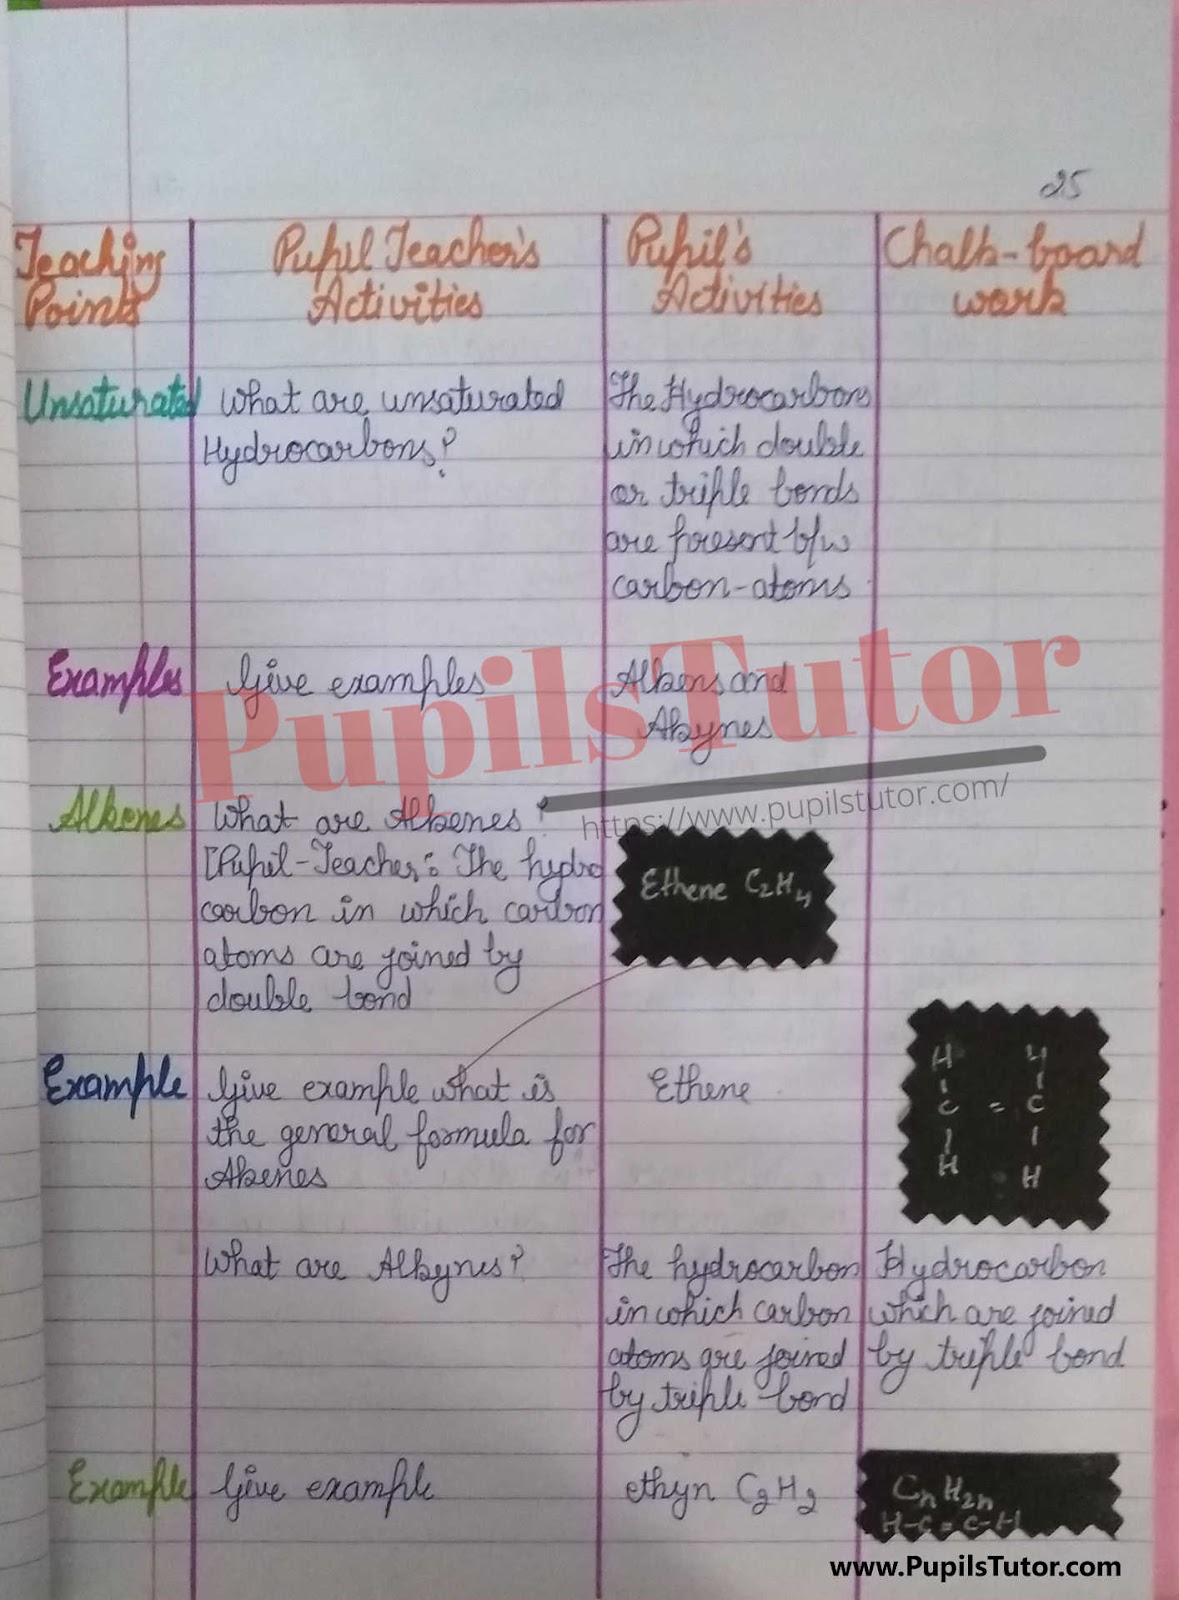 25
Teaching
Points
Pupil Teacher's
Activities
Pupil's
Activities
Chalk-board
work
Unsaturated
What are unsaturated
Hydrocarbons?
The Hydrocarbons
in which double
or triple bonds
are present b/w
carbon-atoms
Examples
Give examples
Alkens and
Alkynes
PupilsTutor
https://www.pupilstutor.com/
Alkenes
What are Alkenes?
[Pupil-Teacher: The hydro
carbon in which carbon
atoms are joined by
double bond
Ethene C₂H₄
Example
Give example what is
the general formula for
Alkenes
Ethene
H H
C = C
H H
What are Alkynes?
The hydrocarbon
in which carbon
atoms are joined
by triple bond
Hydrocarbon
which are joined
by triple bond
Example
Give example
ethyn C₂H₂
CnH2n
H-C≡C-H
www.PupilsTutor.com